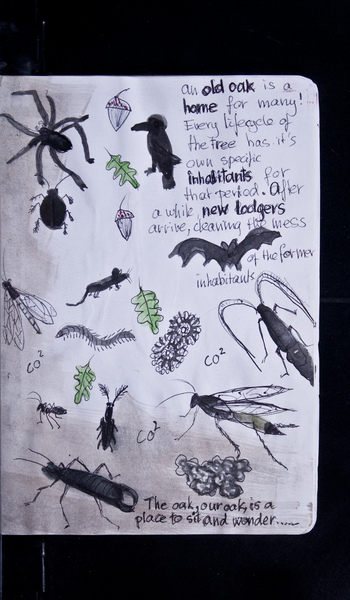 an old oak is a
home for many!
Every lifecycle of
the tree has it's
own specific
inhabitants for
that period. After
a while new lodgers
arrive, cleaning the mess
of the former
inhabitants
CO²
CO²
CO²
The oak, our oak, is a
place to sit and wonder.....